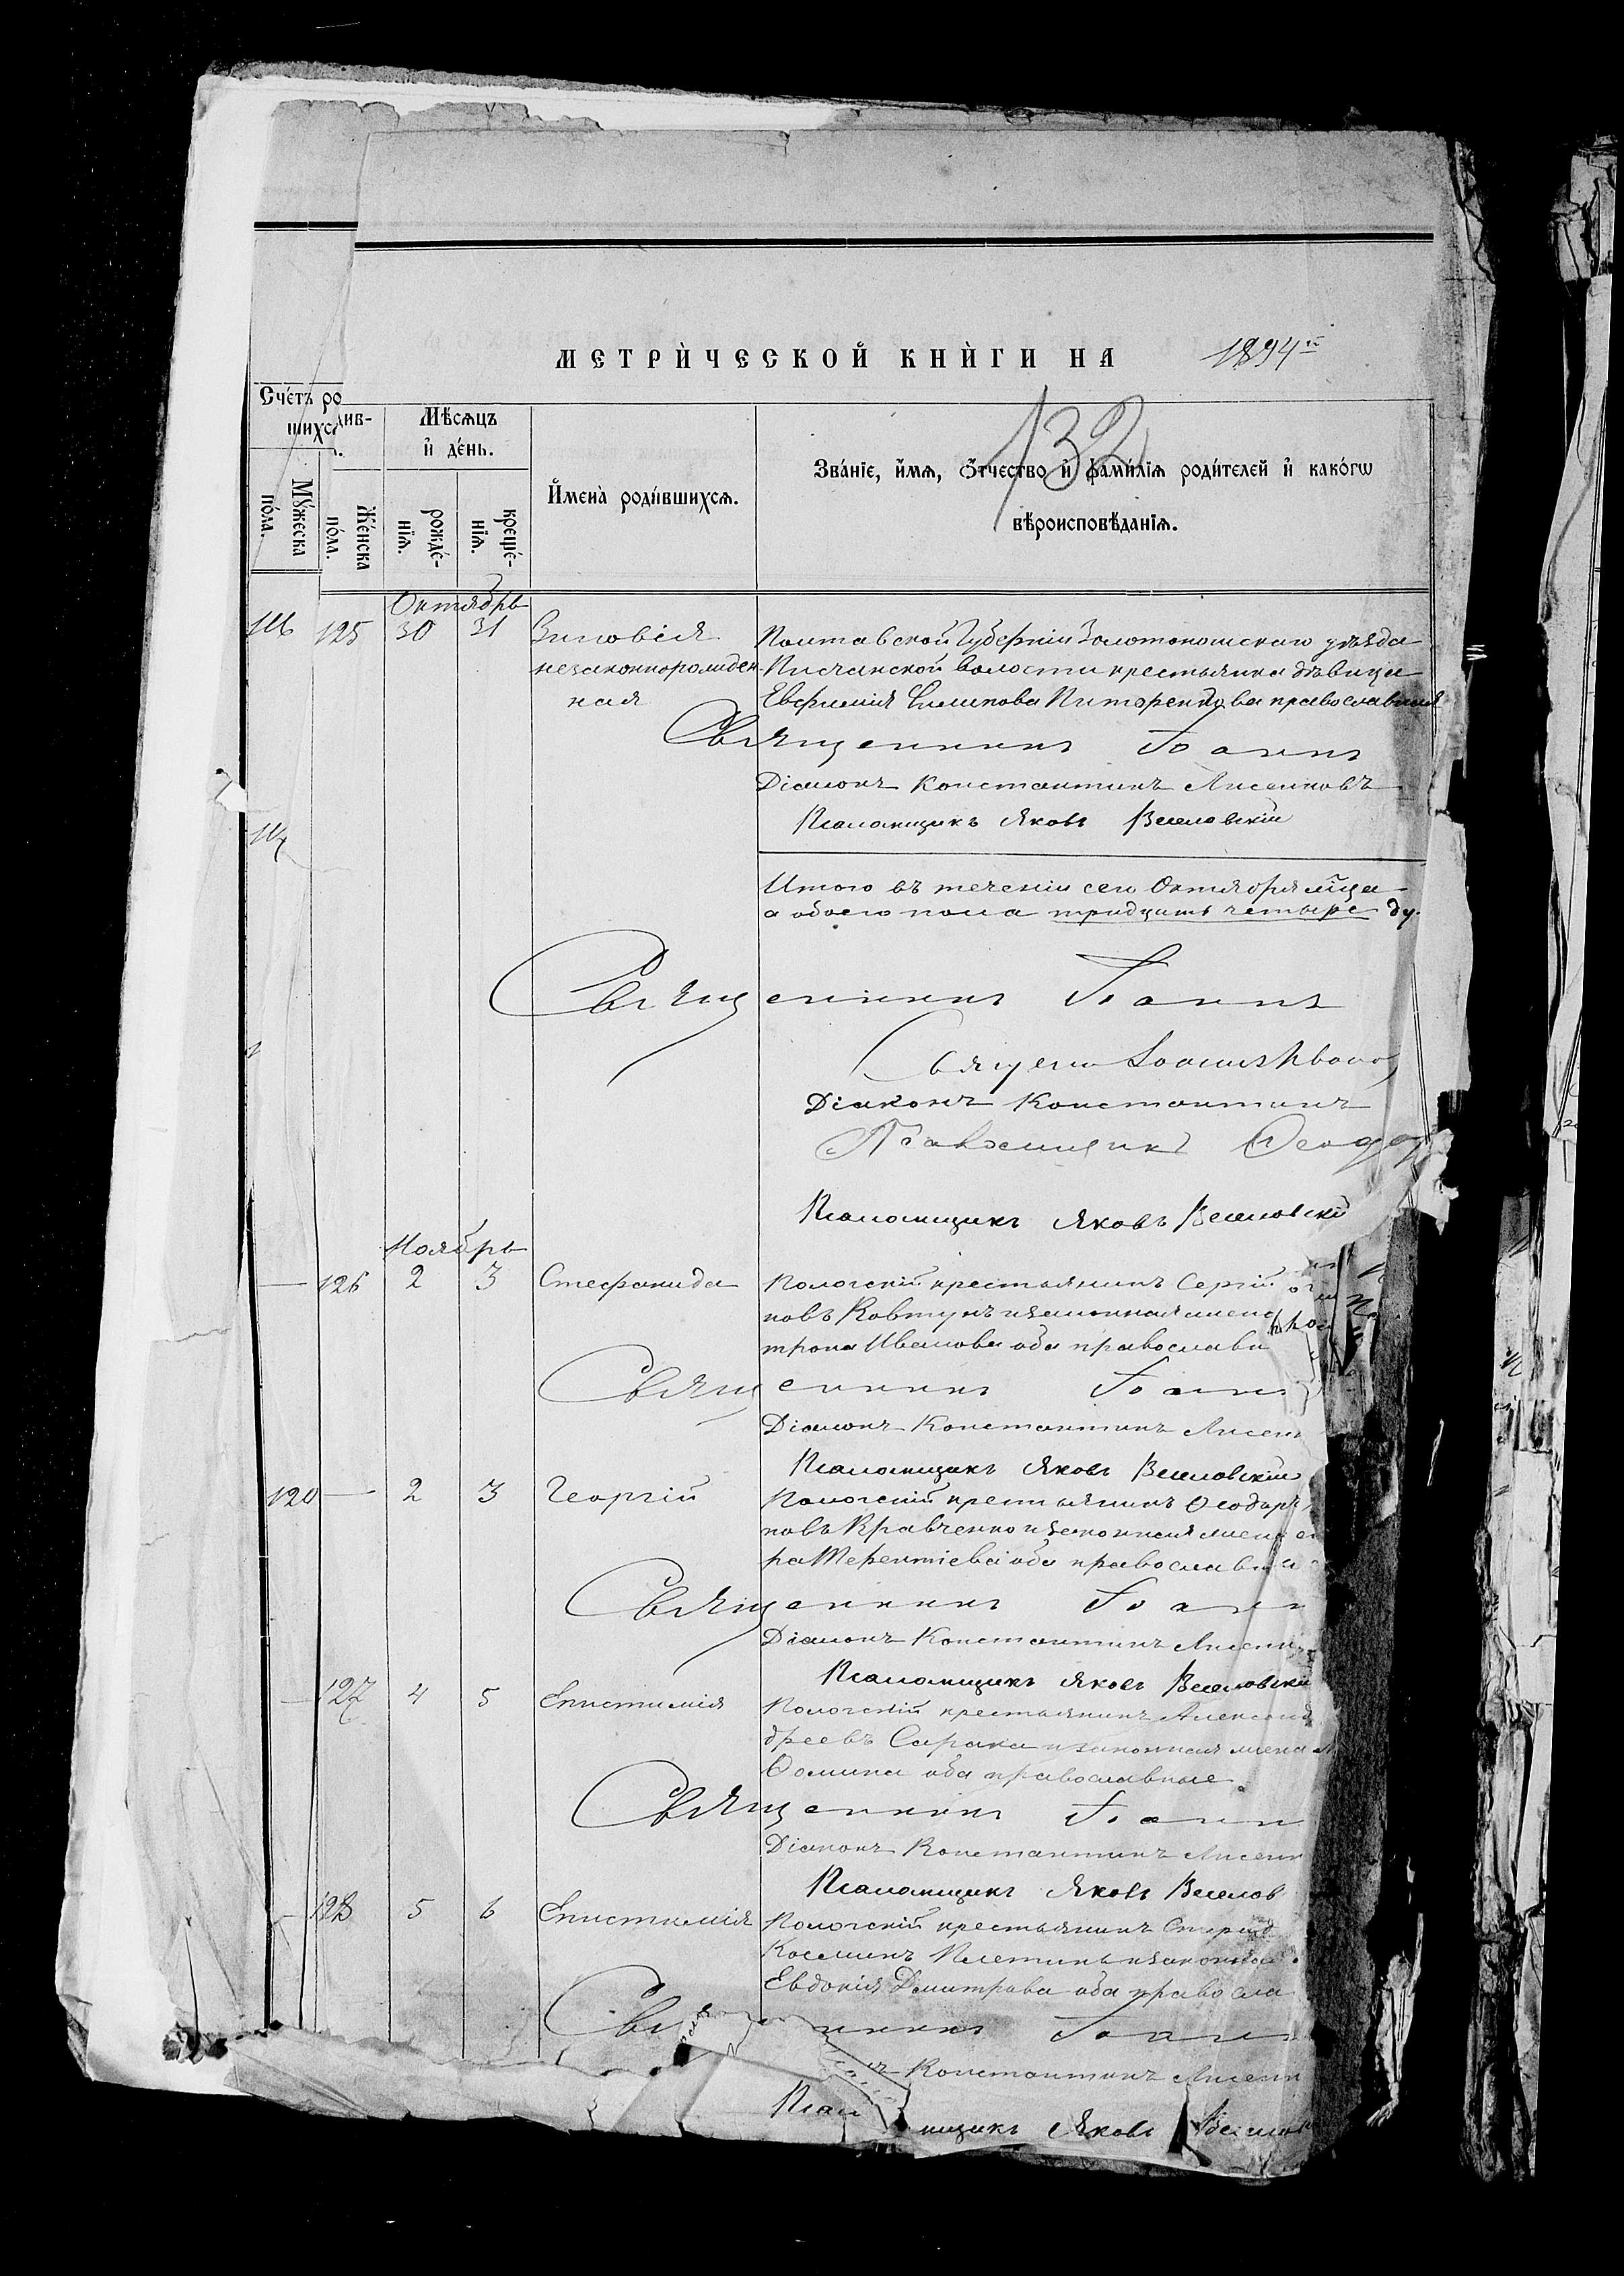 МЕТРИЧЕСКОЙ КНИГИ НА 1894
132
Счетъ ро
див-
шихс
Мѣсяцъ
и день.
Имена родившихся.
Званіе, имя, отчество и фамилія родителей и какогѡ
вѣроисповѣданія.
Мужеска
пола.
Женска
пола.
рожде-
нія.
креще-
нія.
Октябрь
125 30 31 Зиновія Полтавской Губерніи Золотоношскаго уѣзда
незаконнорожден Песчанской волости крестьянка дѣвица
ная Евфимія Питоренкова православная
Священникъ Іоаннъ
Діаконъ Константинъ Лисенковъ
Псаломщикъ Яковъ Веселовскій
Итого въ теченіи сего Октября мѣсца
а обоего пола тридцать четыре ду.
Священникъ Іоаннъ
Діаконъ Константинъ
Псаломщикъ Ѳеодо
Псаломщикъ Яковъ Веселовскій
Ноябрь
— 126 2 3 Стефанида Пологскій крестьянинъ Сергій
новъ Ковтунъ и законная жена
трона Иванова оба православн
Священникъ Іоанн
Діаконъ Константинъ Лисен
Псаломщикъ Яковъ Веселовскій
120 — 2 3 Георгій Пологскій крестьянинъ Ѳеодоръ
новъ Кравченко и законная жена
ра Терентіева оба православн
Священникъ Іоан
Діаконъ Константинъ Лисен
Псаломщикъ Яковъ Веселовскій
— 127 4 5 Епистимія Пологскій крестьянинъ Александ
дреевъ Сарака и законная жена
Ѳомина оба православные
Священникъ Іоанн
Діаконъ Константинъ Лисен
Псаломщикъ Яковъ Веселов
— 128 5 6 Епистимія Пологскій крестьянинъ Спирид
Косминъ Плетинь и законная
Евдокія Димитрова оба правосла
Св нникъ Іоанн
ъ Константинъ Лисен
Псал мщикъ Яковъ Веселов